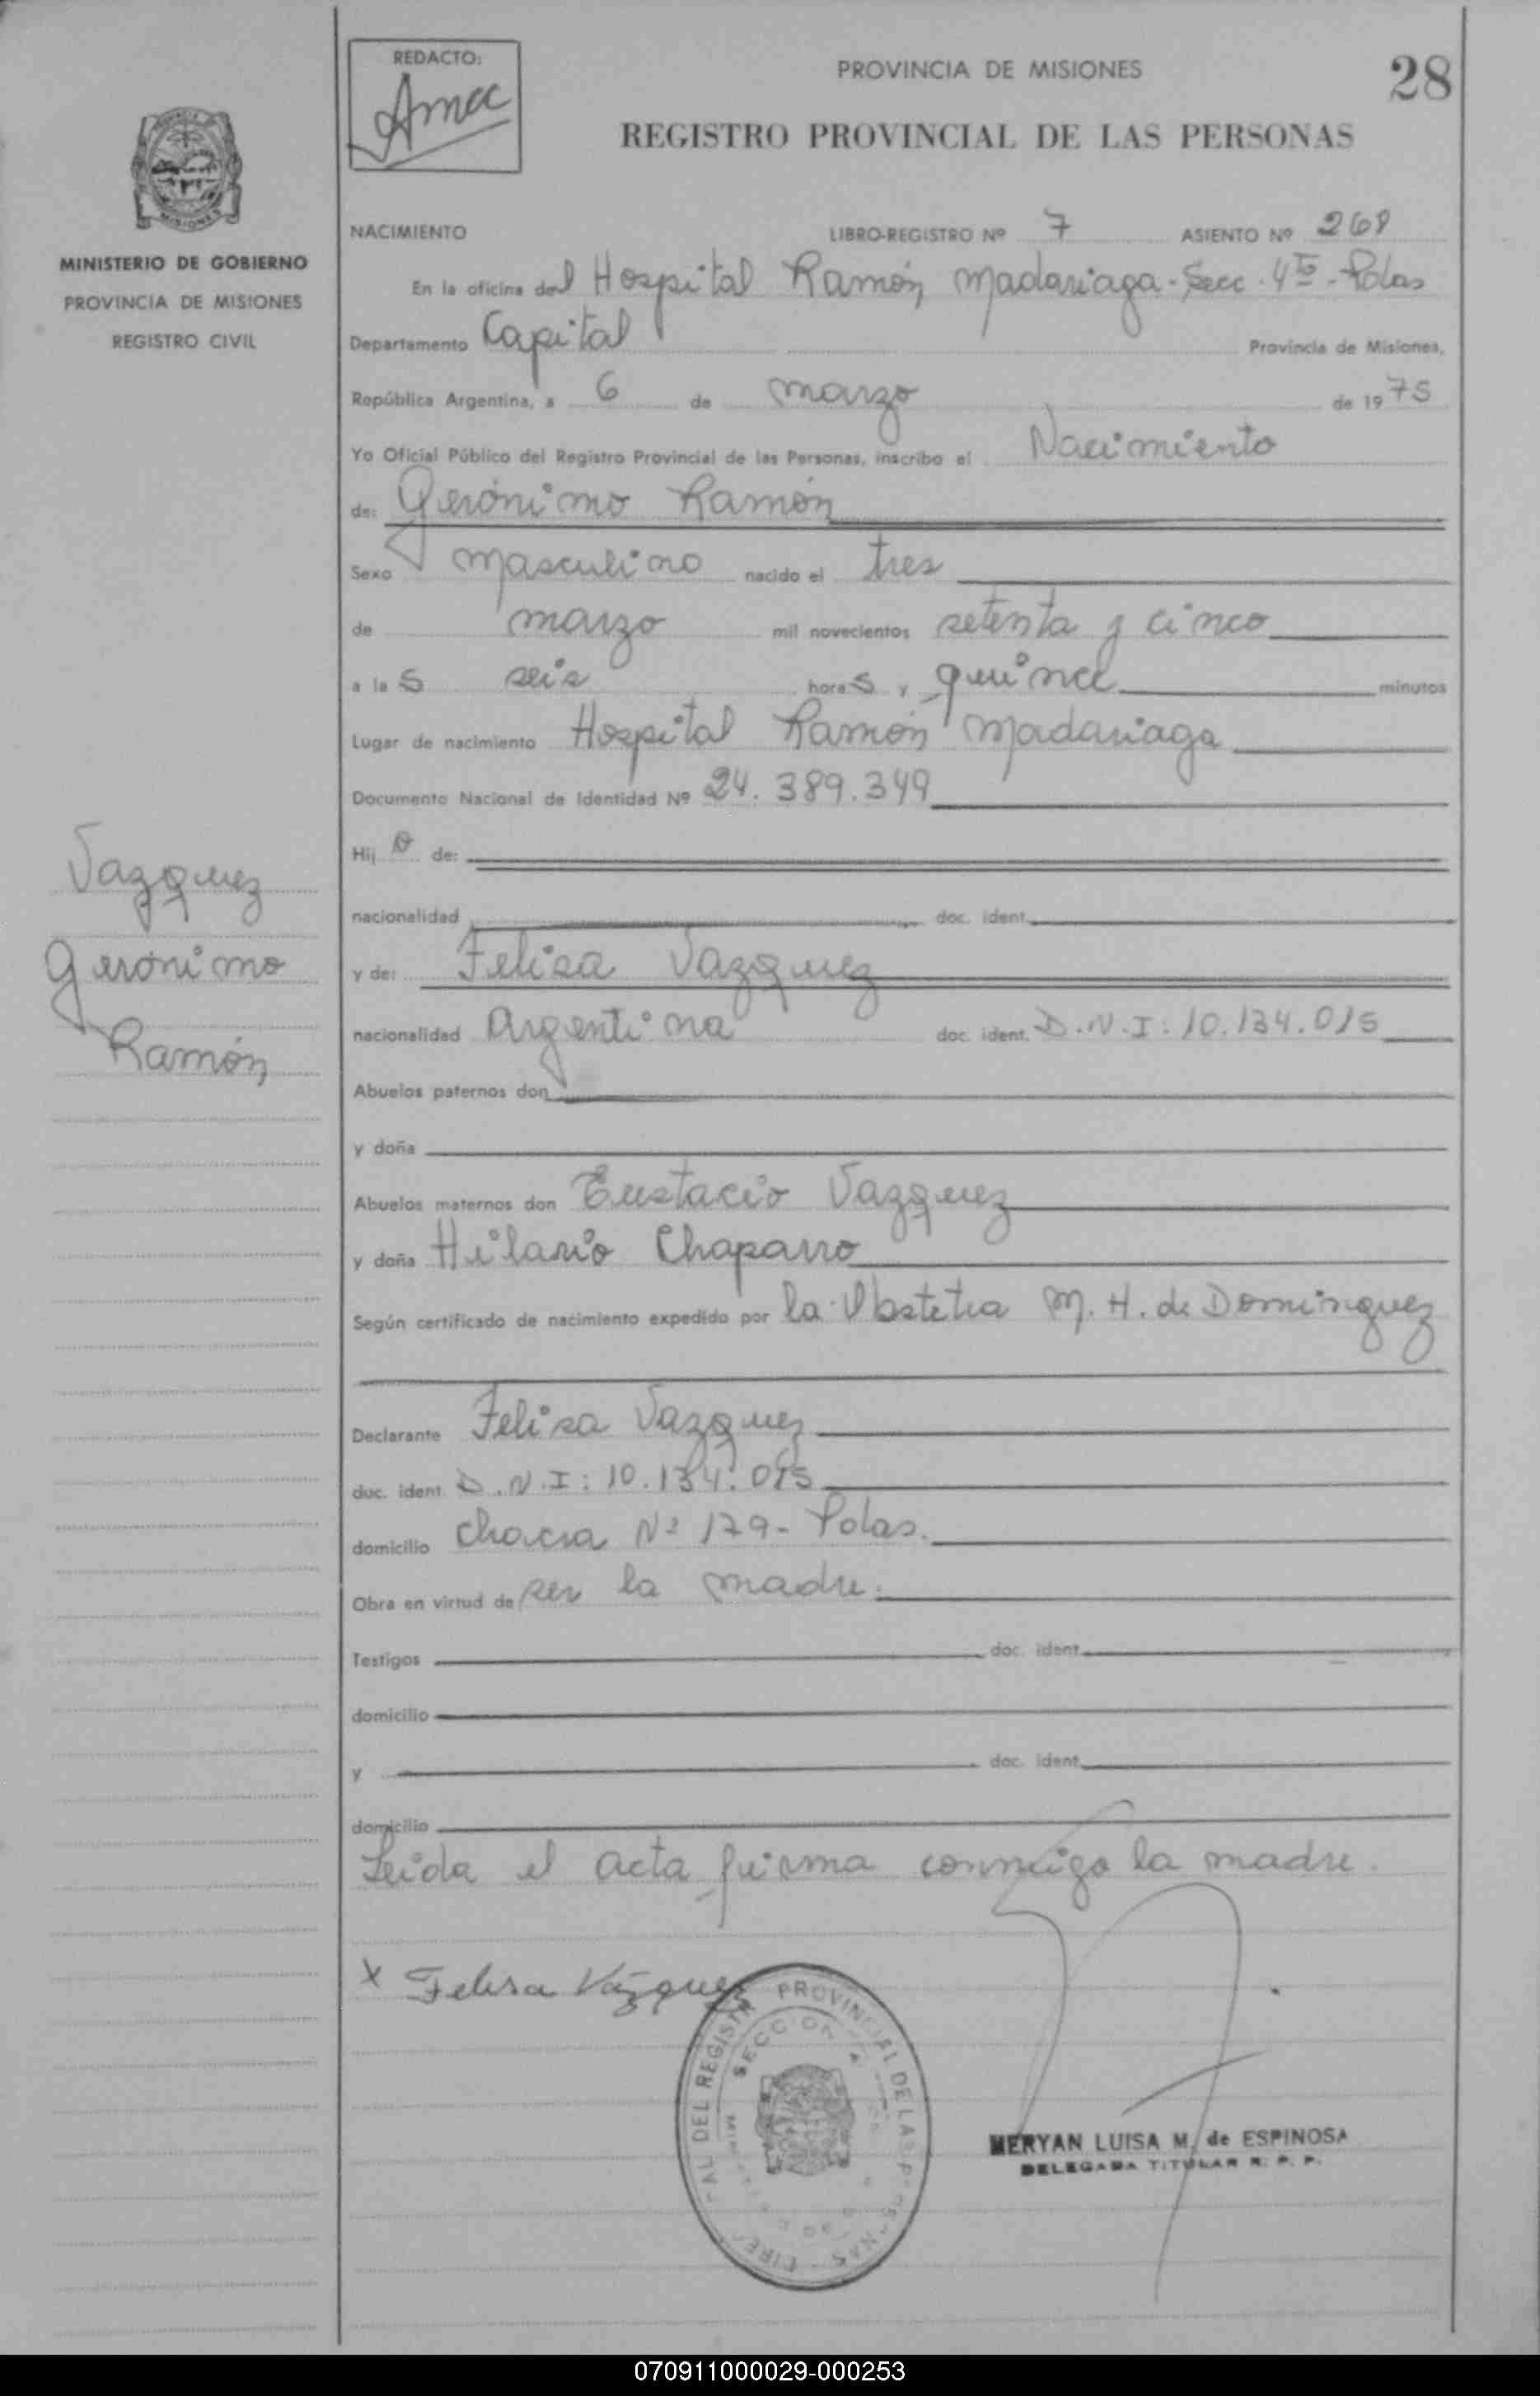 REDACTO:
PROVINCIA DE MISIONES
28
REGISTRO PROVINCIAL DE LAS PERSONAS
MISIONES
MINISTERIO DE GOBIERNO
PROVINCIA DE MISIONES
REGISTRO CIVIL
NACIMIENTO LIBRO-REGISTRO Nº 7 ASIENTO Nº 268
En la oficina del Hospital Ramón Madariaga - Secc. 4ta - Pdas
Departamento Capital Provincia de Misiones,
República Argentina, a 6 de marzo de 1975
Yo Oficial Público del Registro Provincial de las Personas, inscribo el Nacimiento
de: Gerónimo Ramón
Sexo masculino nacido el tres
de marzo mil novecientos setenta y cinco
a las seis horas y quince minutos
Lugar de nacimiento Hospital Ramón Madariaga
Documento Nacional de Identidad Nº 24.389.349
Hijo de:
nacionalidad doc. ident.
y de: Felisa Vazquez
nacionalidad Argentina doc. ident. D.N.I: 10.134.015
Vazquez
Gerónimo
Ramón
Abuelos paternos don
y doña
Abuelos maternos don Eustacio Vazquez
y doña Hilario Chaparro
Según certificado de nacimiento expedido por la Obstetra M. H. de Dominguez
Declarante Felisa Vazquez
doc. ident. D.N.I: 10.134.015
domicilio Chacra Nº 179 - Pdas.
Obra en virtud de ser la madre.
Testigos doc. ident.
domicilio
y doc. ident.
domicilio
Leida el acta firma conmigo la madre.
x Felisa Vázquez
PROVINCIAL DE LAS PERSONAS
DEL REGISTRO
SECCION
MERYAN LUISA M. de ESPINOSA
DELEGADA TITULAR R. P. P.
070911000029-000253